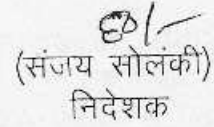 (संजय सोलंकी)
निदेशक